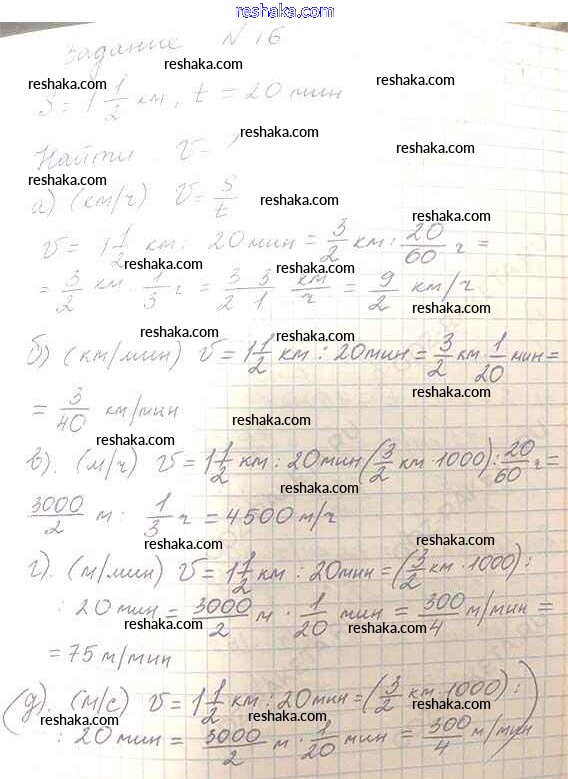 reshaka.com
Задание N 16
reshaka.com
reshaka.com
S = 1 1/2 км, t = 20 мин
reshaka.com
reshaka.com
Найти V = ?
reshaka.com
а) (км/ч) V = S/t
reshaka.com
V = 1 1/2 км : 20 мин = 3/2 км : 20/60 ч =
reshaka.com
= 3/2 км · 1/3 ч = 3/2 3/1 км/ч = 9/2 км/ч
reshaka.com
reshaka.com
б) (км/мин) V = 1 1/2 км : 20 мин = 3/2 км · 1/20 мин =
reshaka.com
= 3/40 км/мин
reshaka.com
reshaka.com
в). (м/ч) V = 1 1/2 км : 20 мин (3/2 км · 1000) : 20/60 ч =
reshaka.com
3000/2 м : 1/3 ч = 4500 м/ч
reshaka.com
reshaka.com
г). (м/мин) V = 1 1/2 км : 20 мин = (3/2 км · 1000) :
reshaka.com
: 20 мин = 3000/2 м · 1/20 мин = 300/4 м/мин =
reshaka.com
reshaka.com
= 75 м/мин
reshaka.com
(д). (м/с) V = 1 1/2 км : 20 мин = (3/2 км 1000) :
reshaka.com
reshaka.com
: 20 мин = 3000/2 м · 1/20 мин = 300/4 м/мин)
reshaka.com
reshaka.com